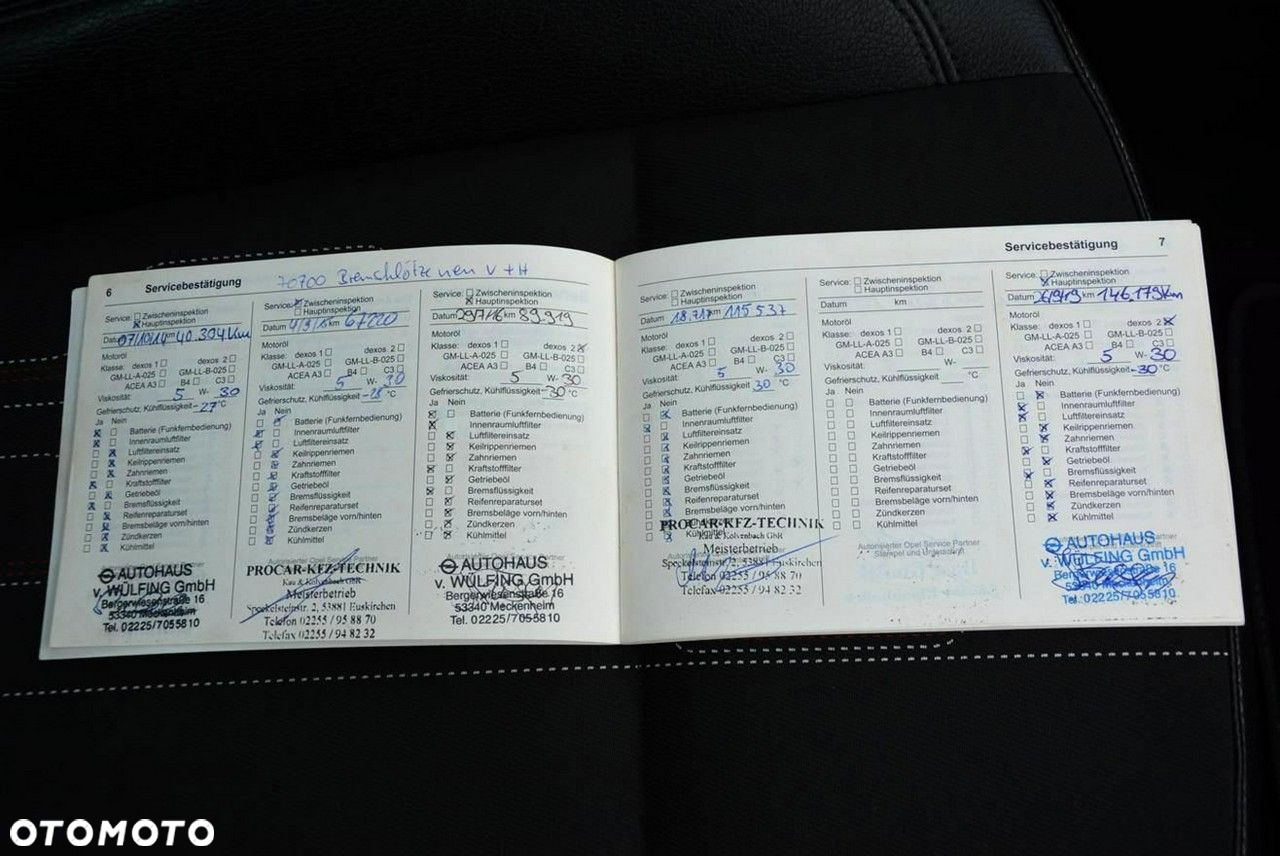 6 Servicebestätigung
70700 Bremsklötze neu V + H
Service: Zwischeninspektion
Hauptinspektion
Datum 07/10/14 km 40.304 Km
Motoröl
Klasse: dexos 1 dexos 2
GM-LL-A-025 GM-LL-B-025
ACEA A3 B4 C3
Viskosität: 5 W- 30
Gefrierschutz, Kühlflüssigkeit -27 °C
Ja Nein
Batterie (Funkfernbedienung)
Innenraumluftfilter
Luftfiltereinsatz
Keilrippenriemen
Zahnriemen
Kraftstofffilter
Getriebeöl
Bremsflüssigkeit
Reifenreparaturset
Bremsbeläge vorn/hinten
Zündkerzen
Kühlmittel
AUTOHAUS
v. WÜLFING GmbH
Bergerwiesenstraße 16
53340 Meckenheim
Tel. 02225/7055810
Service: Zwischeninspektion
Hauptinspektion
Datum km 67220
Motoröl
Klasse: dexos 1 dexos 2
GM-LL-A-025 GM-LL-B-025
ACEA A3 B4 C3
Viskosität: 5 W- 30
Gefrierschutz, Kühlflüssigkeit °C
Ja Nein
Batterie (Funkfernbedienung)
Innenraumluftfilter
Luftfiltereinsatz
Keilrippenriemen
Zahnriemen
Kraftstofffilter
Getriebeöl
Bremsflüssigkeit
Reifenreparaturset
Bremsbeläge vorn/hinten
Zündkerzen
Kühlmittel
Autorisierter Opel Service Partner
PROCAR-KFZ-TECHNIK
Kau & Kolvenbach GbR
Meisterbetrieb
Speckelsteinstr. 2, 53881 Euskirchen
Telefon 02255 / 95 88 70
Telefax 02255 / 94 82 32
Service: Zwischeninspektion
Hauptinspektion
Datum 29/7/16 km 89.919
Motoröl
Klasse: dexos 1 dexos 2
GM-LL-A-025 GM-LL-B-025
ACEA A3 B4 C3
Viskosität: 5 W- 30
Gefrierschutz, Kühlflüssigkeit -30 °C
Ja Nein
Batterie (Funkfernbedienung)
Innenraumluftfilter
Luftfiltereinsatz
Keilrippenriemen
Zahnriemen
Kraftstofffilter
Getriebeöl
Bremsflüssigkeit
Reifenreparaturset
Bremsbeläge vorn/hinten
Zündkerzen
Kühlmittel
AUTOHAUS
v. WÜLFING GmbH
Bergerwiesenstraße 16
53340 Meckenheim
Tel. 02225/7055810
Servicebestätigung 7
Service: Zwischeninspektion
Hauptinspektion
Datum 18.7.17 km 115537
Motoröl
Klasse: dexos 1 dexos 2
GM-LL-A-025 GM-LL-B-025
ACEA A3 B4 C3
Viskosität: 5 W- 30
Gefrierschutz, Kühlflüssigkeit 30 °C
Ja Nein
Batterie (Funkfernbedienung)
Innenraumluftfilter
Luftfiltereinsatz
Keilrippenriemen
Zahnriemen
Kraftstofffilter
Getriebeöl
Bremsflüssigkeit
Reifenreparaturset
Bremsbeläge vorn/hinten
Zündkerzen
Kühlmittel
PROCAR-KFZ-TECHNIK
Kau & Kolvenbach GbR
Meisterbetrieb
Speckelsteinstr. 2, 53881 Euskirchen
Telefon 02255 / 95 88 70
Telefax 02255 / 94 82 32
Service: Zwischeninspektion
Hauptinspektion
Datum km
Motoröl
Klasse: dexos 1 dexos 2
GM-LL-A-025 GM-LL-B-025
ACEA A3 B4 C3
Viskosität: W-
Gefrierschutz, Kühlflüssigkeit °C
Ja Nein
Batterie (Funkfernbedienung)
Innenraumluftfilter
Luftfiltereinsatz
Keilrippenriemen
Zahnriemen
Kraftstofffilter
Getriebeöl
Bremsflüssigkeit
Reifenreparaturset
Bremsbeläge vorn/hinten
Zündkerzen
Kühlmittel
Autorisierter Opel Service Partner
Stempel und Unterschrift
Service: Zwischeninspektion
Hauptinspektion
Datum 26/9/19 km 146.179 Km
Motoröl
Klasse: dexos 1 dexos 2
GM-LL-A-025 GM-LL-B-025
ACEA A3 B4 C3
Viskosität: 5 W- 30
Gefrierschutz, Kühlflüssigkeit -30 °C
Ja Nein
Batterie (Funkfernbedienung)
Innenraumluftfilter
Luftfiltereinsatz
Keilrippenriemen
Zahnriemen
Kraftstofffilter
Getriebeöl
Bremsflüssigkeit
Reifenreparaturset
Bremsbeläge vorn/hinten
Zündkerzen
Kühlmittel
AUTOHAUS
v. WÜLFING GmbH
Bergerwiesenstraße 16
53340 Meckenheim
Tel. 02225/7055810
OTOMOTO